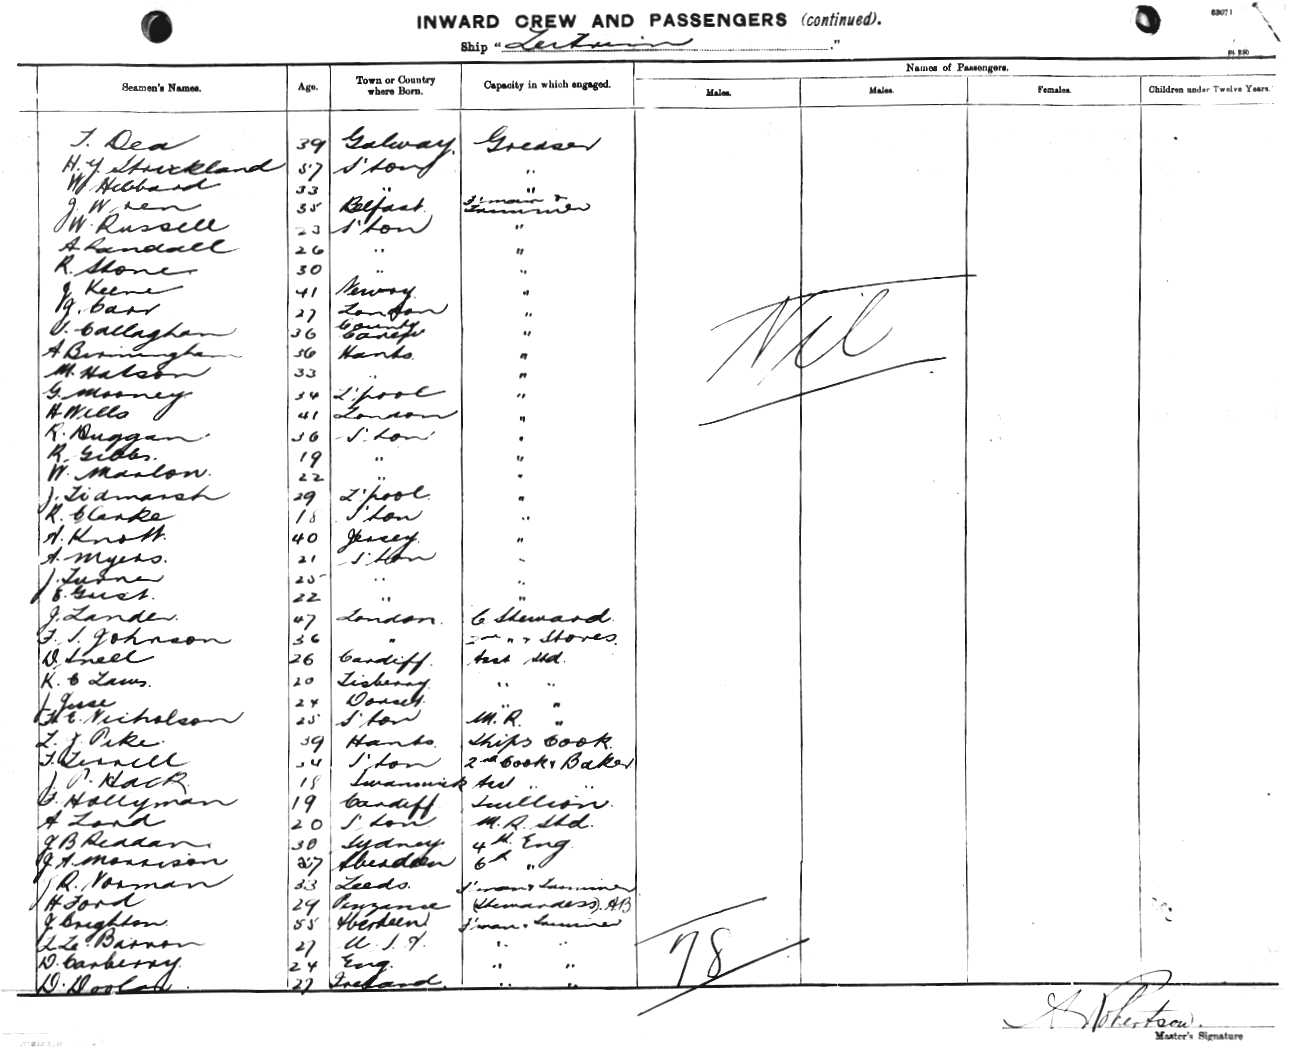 63071
INWARD CREW AND PASSENGERS (continued).
Ship "Leitrim."
Seamen's Names. Age. Town or Country where Born. Capacity in which engaged. Names of Passengers.
Males. Males. Females. Children under Twelve Years.
T. Dea 39 Galway. Greaser
H. Y. Strickland 57 S'ton "
W Hibbard 33 " "
J. Wren 35 Belfast. F'man & Trimmer
W. Russell 23 S'ton "
A Randall 26 " "
R. Stone 30 " "
J Keene 41 Newry "
J. Carr 27 London "
Callaghan 36 County "
A Birmingham 36 Hants. "
M. Hatson 33 " "
G. Mooney 34 L'pool "
H Wills 41 London "
R. Duggan 36 S'ton "
R. Gibbs. 19 " "
W. Marlon. 22 " "
J. Tidmarsh 29 L'pool. "
R. Clarke 18 S'ton "
A. Knott. 40 Jersey. "
A. Myers. 21 S'ton "
J. Turner 25 " "
E. Gust. 22 " "
J. Lander. 47 London. C Steward.
F. S. Johnson 36 " 2nd " & Stores.
D. Snell 26 Cardiff. Asst Std.
K. C Laws. 20 Tisberry " "
J 24 Dorset. " "
Nicholson 25 S'ton M. R. "
L. J. Pike. 39 Hants. Ships Cook.
F. Terrell 34 S'ton 2nd Cook & Baker
J. P. Hack 18 Swanwick Asst " "
F. Hollyman 19 Cardiff Scullion.
A Lord 20 S'ton M. R. Std.
J B Reddan. 30 Sydney. 4th Eng.
J. A. Morrison 27 Aberdeen 6th "
J R. Norman 33 Leeds. F'man & Trimmer
H Ford 29 Penzance (Stewardess). AB
J. Brighton. 55 Aberdeen F'man & Trimmer
Le Barron 27 U. S. A. " "
D. Carberry. 24 Eng. " "
D. Doolan 27 Ireland. " "
Nil
78
A Robertson.
Master's Signature